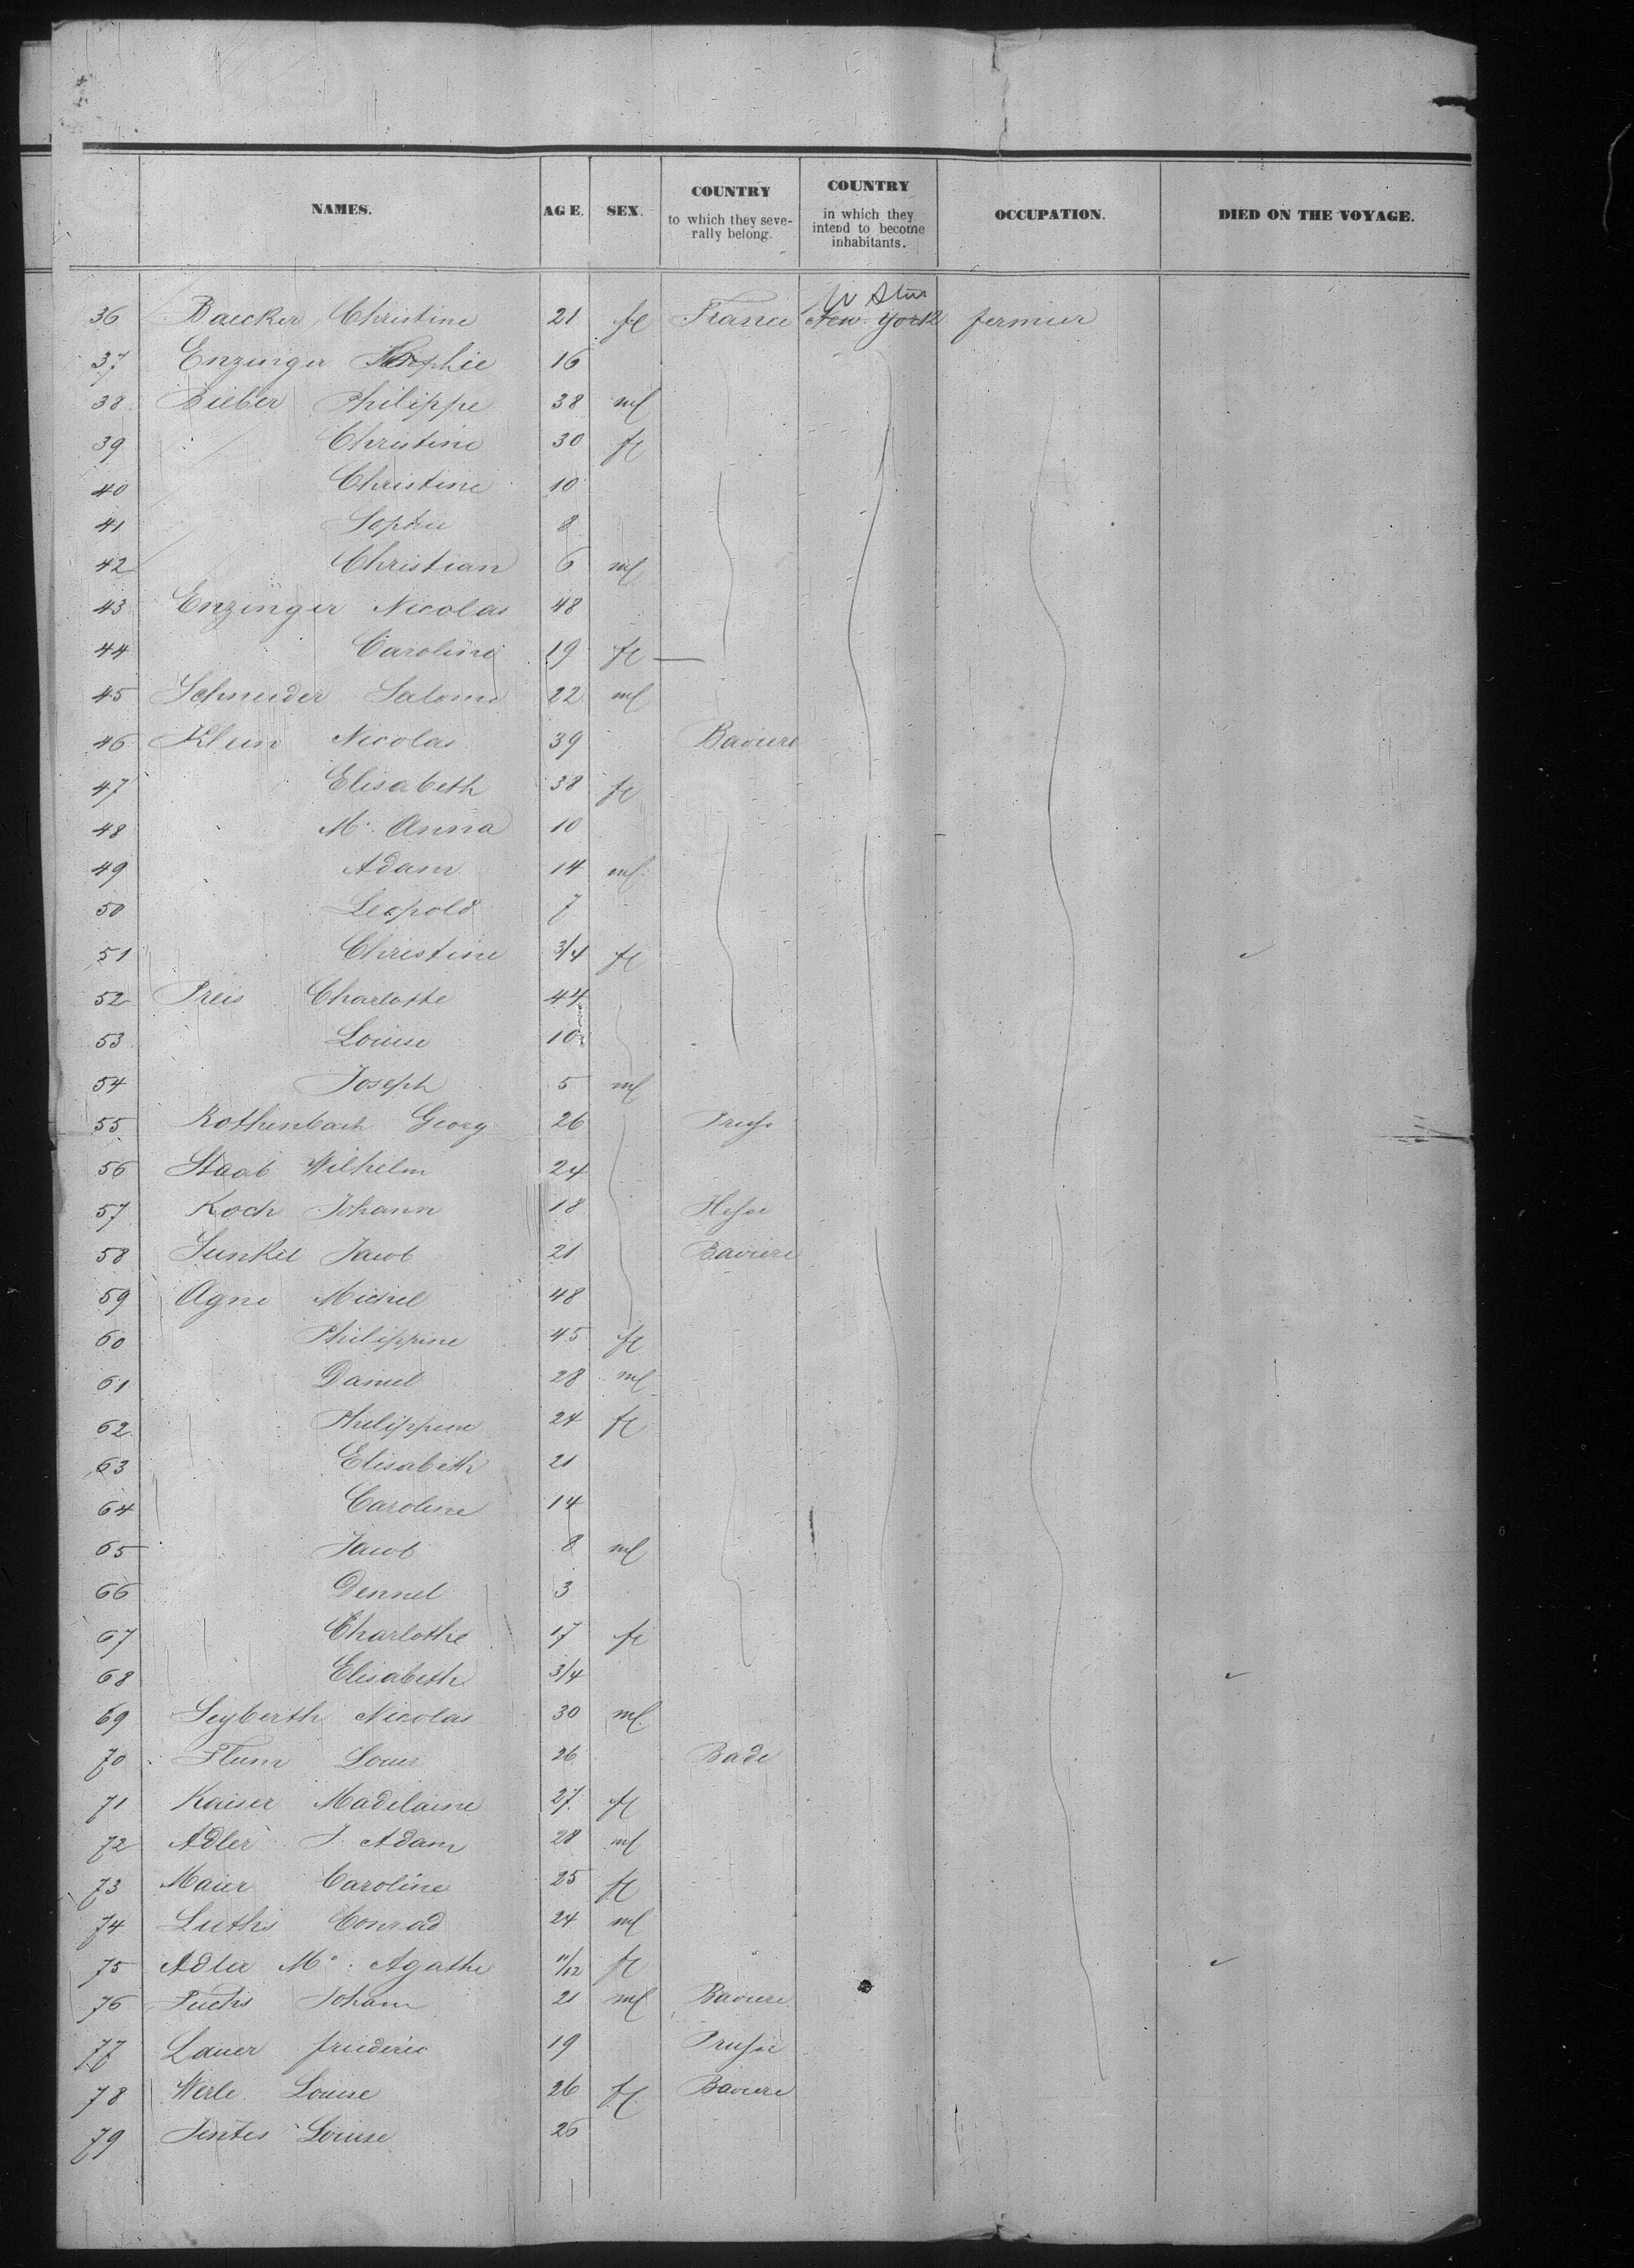 NAMES. AGE. SEX. COUNTRY to which they seve-rally belong. COUNTRY in which they intend to become inhabitants. OCCUPATION. DIED ON THE VOYAGE.
36 Baecker Christine 21 fl France New York fermier
37 Enzinger Sophie 16
38 Bieber Philippe 38 ml
39 Christine 30 fl
40 Christine 10
41 Sophie 8
42 Christian 6 ml
43 Enzinger Nicolas 48
44 Caroline 19 fl
45 Schneider Salome 22 ml
46 Klein Nicolas 39 Baviere
47 Elisabeth 38 fl
48 M. Anna 10
49 Adam 14 ml
50 Leopold 7
51 Christine 3/4 fl ✓
52 Preis Charlotte 44
53 Louise 10
54 Joseph 5 ml
55 Rothenbach Georg 26
56 Staab Wilhelm 24
57 Koch Johann 18 Hesse
58 Junkel Jacob 21 Baviere
59 Agne Michel 48
60 Philippine 45 fl
61 Daniel 28 ml
62 Philippine 24 fl
63 Elisabeth 21
64 Caroline 14
65 Jacob 8 ml
66 3
67 Charlothe 17 fl
68 Elisabeth 3/4 ✓
69 Seyberth Nicolas 30 ml
70 Flum Louis 26 Bade
71 Kaiser Madelaine 27 fl
72 Adler J. Adam 28 ml
73 Maier Caroline 25 fl
74 Luthi Conrad 24 ml
75 Adler Ma. Agathe 11/12 fl ✓
76 Fuchs Johann 21 ml Baviere
77 Lauer frederic 19 Prusse
78 Werle Louise 26 fl Baviere
79 Louise 26